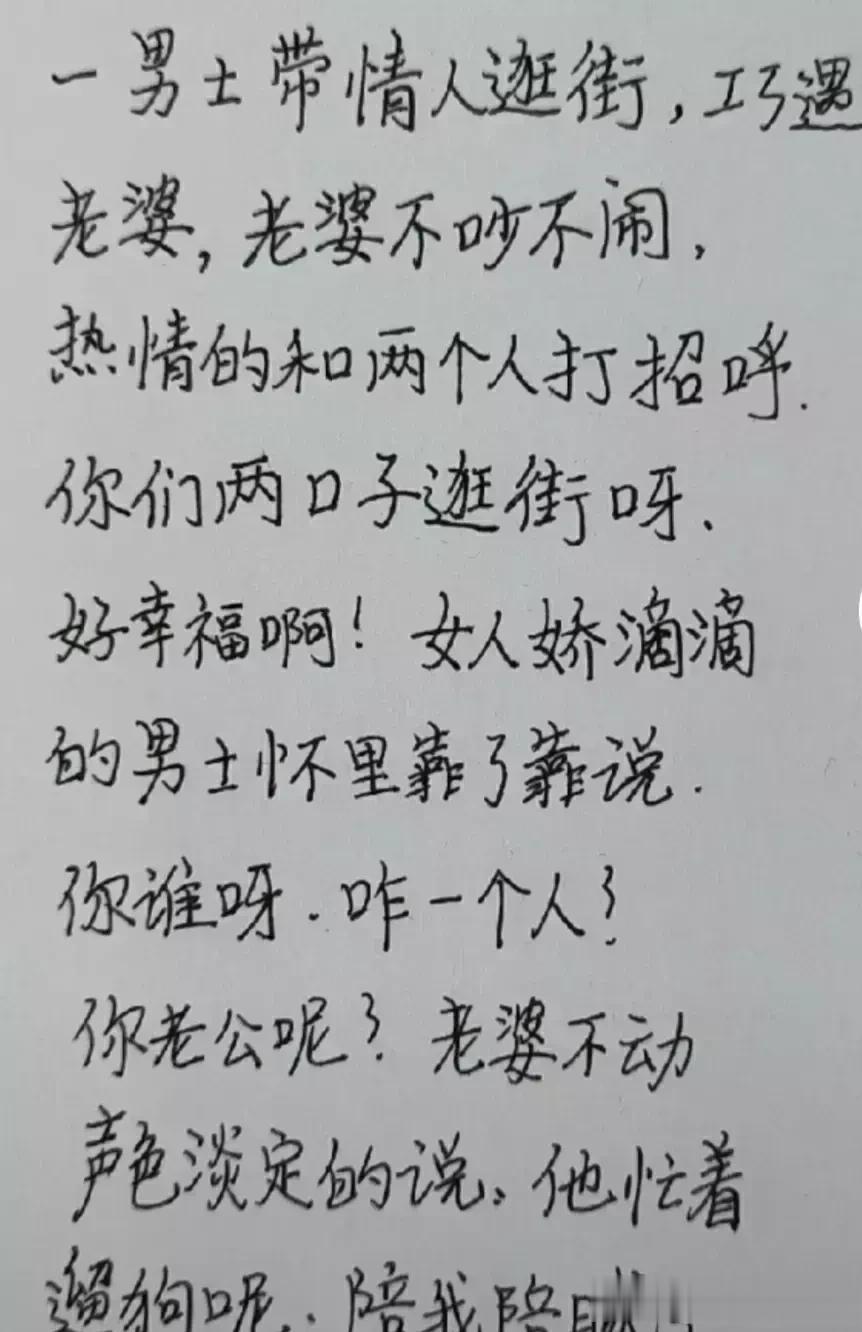 一男士带情人逛街,巧遇
老婆,老婆不吵不闹,
热情的和两个人打招呼.
你们两口子逛街呀、
好幸福啊!女人娇滴滴
的男士怀里靠了靠说.
你谁呀.咋一个人?
你老公呢?老婆不动
声色淡定的说、他忙着
遛狗呢..陪我陪